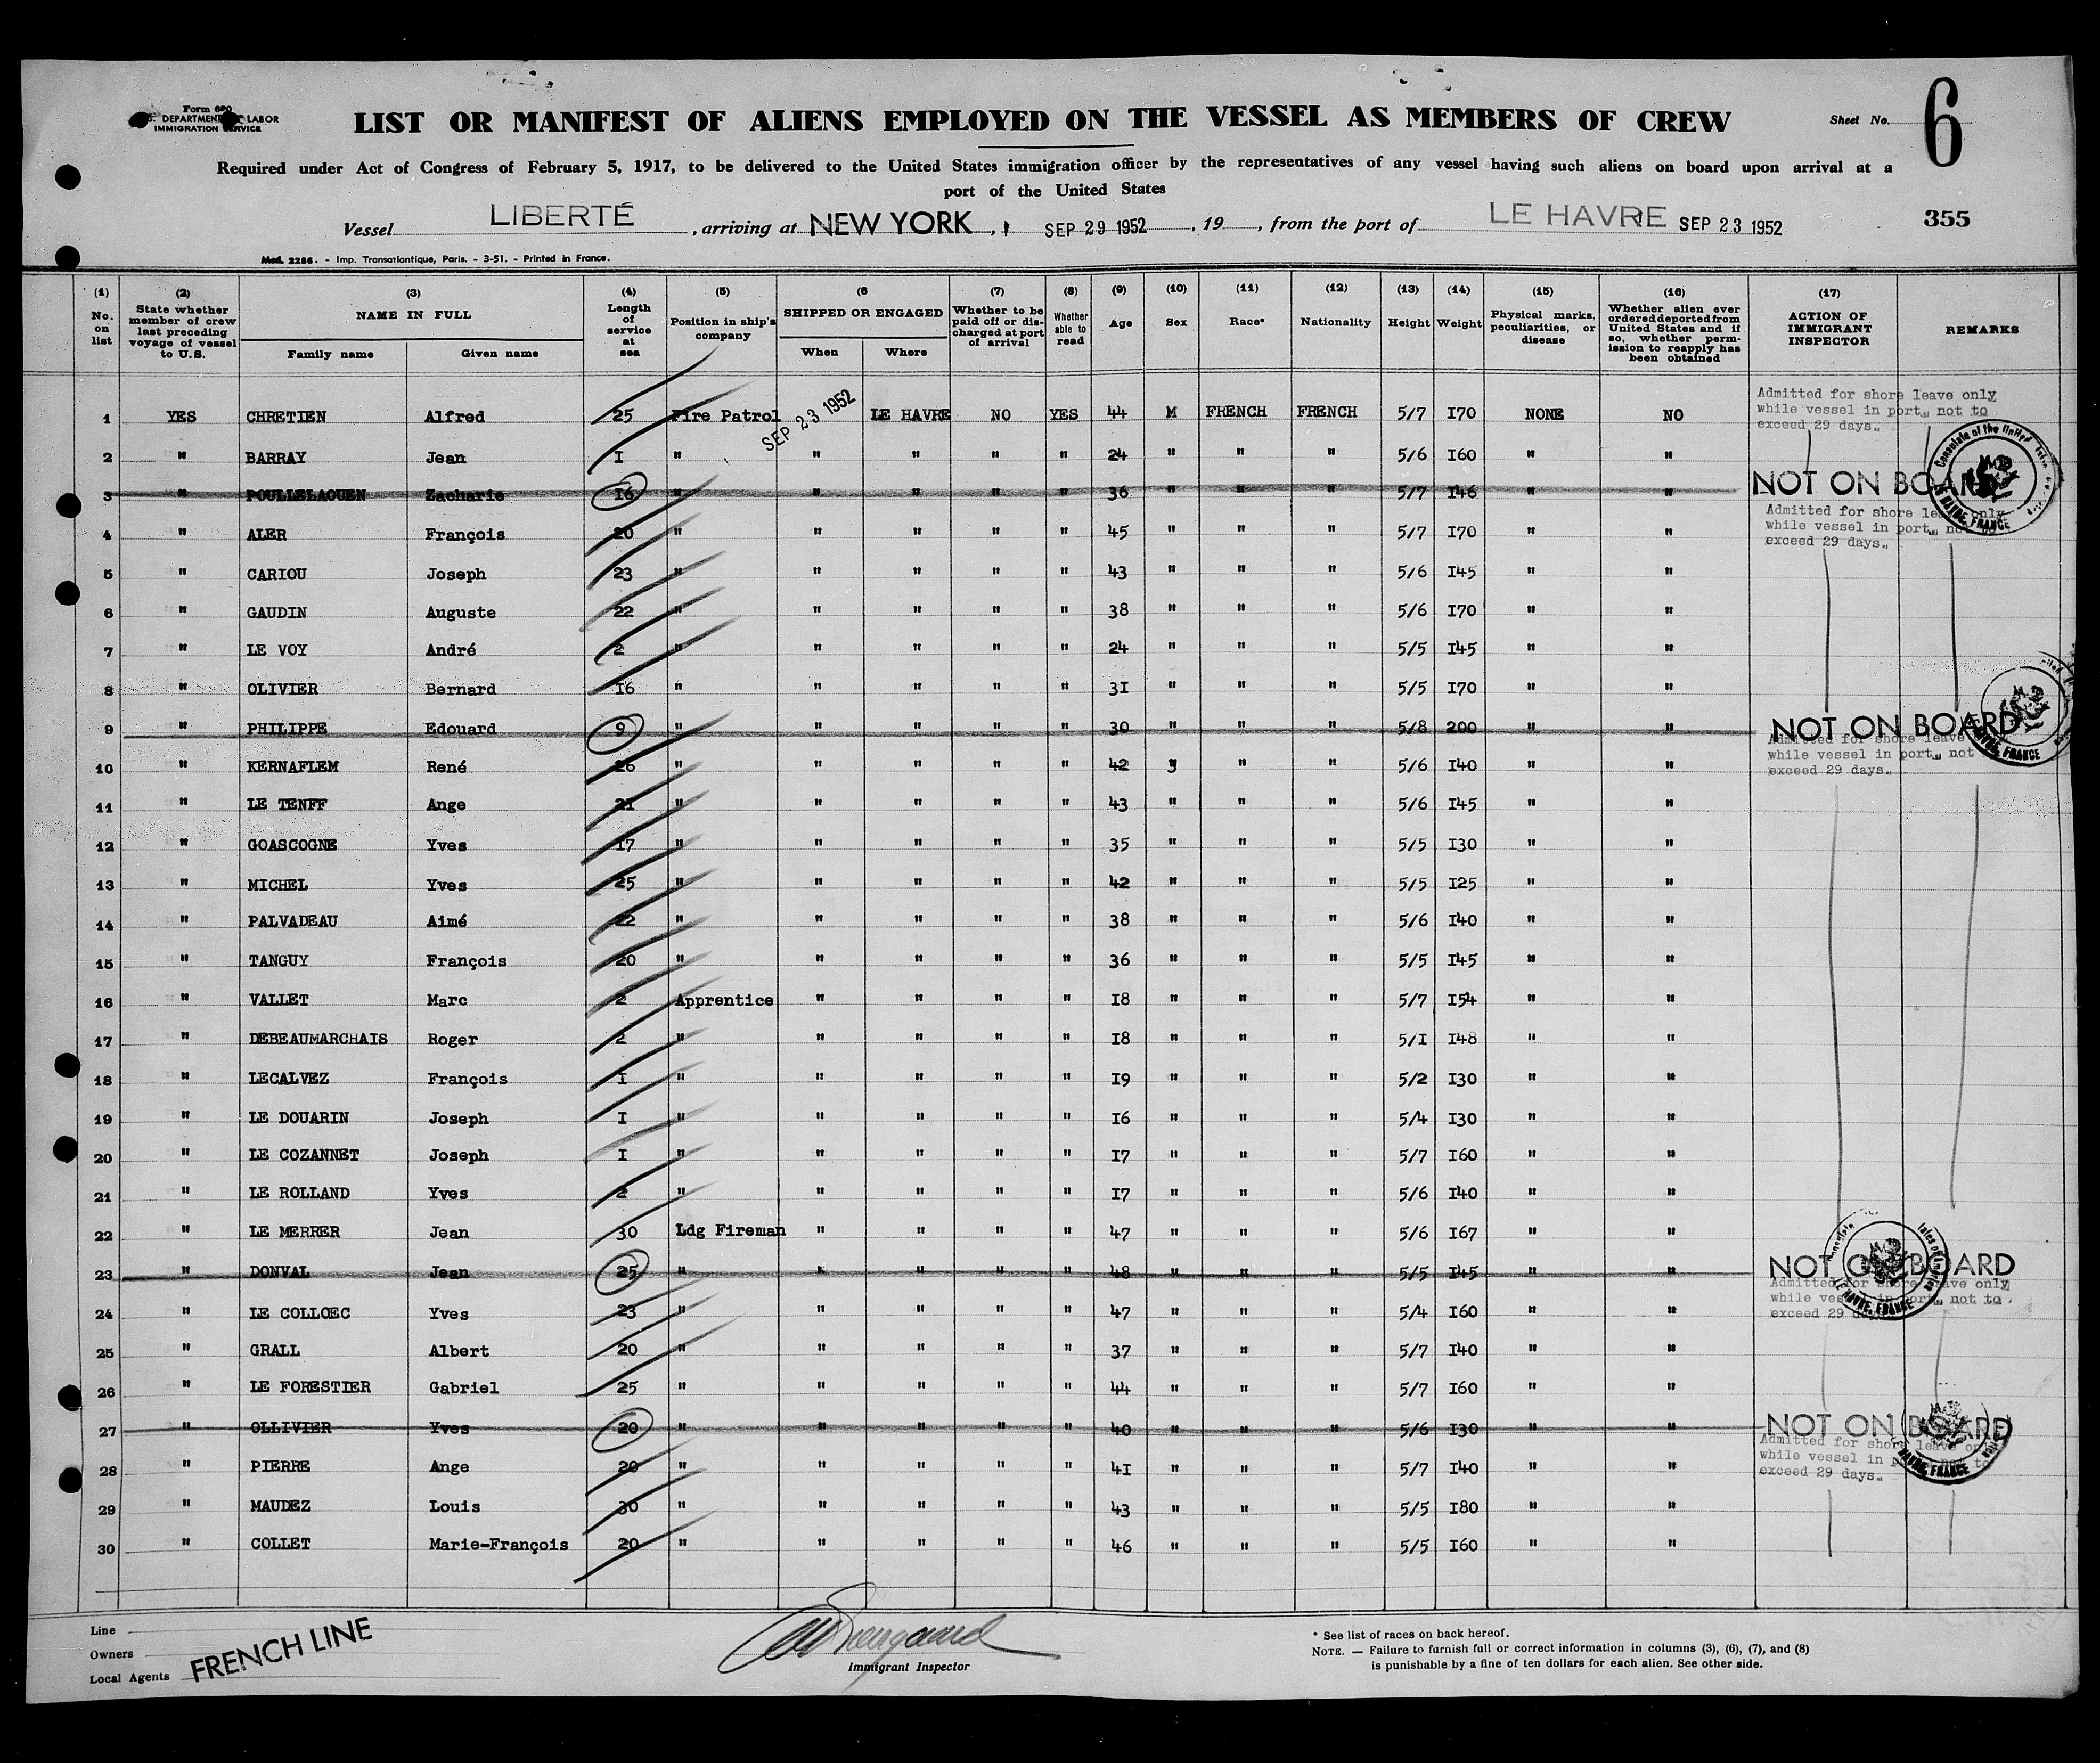 Form 680
U.S. DEPARTMENT OF LABOR
IMMIGRATION SERVICE
LIST OR MANIFEST OF ALIENS EMPLOYED ON THE VESSEL AS MEMBERS OF CREW
Sheet No. 6
Required under Act of Congress of February 5, 1917, to be delivered to the United States immigration officer by the representatives of any vessel having such aliens on board upon arrival at a
port of the United States
Vessel LIBERTÉ, arriving at NEW YORK, SEP 29 1952, 19 , from the port of LE HAVRE SEP 23 1952
355
Mod. 2286. - Imp. Transatlantique, Paris. - 3-51. - Printed in France.
(1) No. on list
(2) State whether member of crew last preceding voyage of vessel to U.S.
(3) NAME IN FULL Family name Given name
(4) Length of service at sea
(5) Position in ship's company
(6 SHIPPED OR ENGAGED When Where
(7) Whether to be paid off or discharged at port of arrival
(8) Whether able to read
(9) Age
(10) Sex
(11) Race*
(12) Nationality
(13) Height
(14) Weight
(15) Physical marks, peculiarities, or disease
(16) Whether alien ever ordered deported from United States and if so, whether permission to reapply has been obtained
(17) ACTION OF IMMIGRANT INSPECTOR
REMARKS
1 YES CHRETIEN Alfred 25 Fire Patrol SEP 23 1952 LE HAVRE NO YES 44 M FRENCH FRENCH 5/7 170 NONE NO Admitted for shore leave only while vessel in port, not to exceed 29 days.
2 " BARRAY Jean I " " " " " 24 " " " 5/6 I60 " "
3 " POULLELAOUEN Zacharie 16 " " " " " 36 " " " 5/7 I46 " " NOT ON BOARD
4 " ALER François 20 " " " " " 45 " " " 5/7 I70 " " Admitted for shore leave only while vessel in port, not to exceed 29 days.
5 " CARIOU Joseph 23 " " " " " 43 " " " 5/6 I45 " "
6 " GAUDIN Auguste 22 " " " " " 38 " " " 5/6 I70 " "
7 " LE VOY André 2 " " " " " 24 " " " 5/5 I45 " "
8 " OLIVIER Bernard I6 " " " " " 3I " " " 5/5 I70 " "
9 " PHILIPPE Edouard 9 " " " " " 30 " " " 5/8 200 " " NOT ON BOARD
10 " KERNAFLEM René 26 " " " " " 42 " " " 5/6 I40 " " Admitted for shore leave while vessel in port, not exceed 29 days.
11 " LE TENFF Ange 21 " " " " " 43 " " " 5/6 I45 " "
12 " GOASCOGNE Yves I7 " " " " " 35 " " " 5/5 I30 " "
13 " MICHEL Yves 25 " " " " " 42 " " " 5/5 I25 " "
14 " PALVADEAU Aimé 22 " " " " " 38 " " " 5/6 I40 " "
15 " TANGUY François 20 " " " " " 36 " " " 5/5 I45 " "
16 " VALLET Marc 2 Apprentice " " " " I8 " " " 5/7 I54 " "
17 " DEBEAUMARCHAIS Roger 2 " " " " " I8 " " " 5/I I48 " "
18 " LECALVEZ François I " " " " " I9 " " " 5/2 I30 " "
19 " LE DOUARIN Joseph I " " " " " I6 " " " 5/4 I30 " "
20 " LE COZANNET Joseph I " " " " " I7 " " " 5/7 I60 " "
21 " LE ROLLAND Yves 2 " " " " " I7 " " " 5/6 I40 " "
22 " LE MERRER Jean 30 Ldg Fireman " " " " 47 " " " 5/6 I67 " "
23 " DONVAL Jean 25 " " " " " 48 " " " 5/5 I45 " " NOT ON BOARD
24 " LE COLLOEC Yves 23 " " " " " 47 " " " 5/4 I60 " " Admitted for shore leave only while vessel in port, not to exceed 29 days
25 " GRALL Albert 20 " " " " " 37 " " " 5/7 I40 " "
26 " LE FORESTIER Gabriel 25 " " " " " 44 " " " 5/7 I60 " "
27 " OLLIVIER Yves 20 " " " " " 40 " " " 5/6 I30 " " NOT ON BOARD
28 " PIERRE Ange 20 " " " " " 4I " " " 5/7 I40 " " Admitted for shore leave only while vessel in port, not to exceed 29 days.
29 " MAUDEZ Louis 30 " " " " " 43 " " " 5/5 I80 " "
30 " COLLET Marie-François 20 " " " " " 46 " " " 5/5 I60 " "
Line
Owners
Local Agents
FRENCH LINE
Immigrant Inspector
* See list of races on back hereof.
NOTE. — Failure to furnish full or correct information in columns (3), (6), (7), and (8)
is punishable by a fine of ten dollars for each alien. See other side.